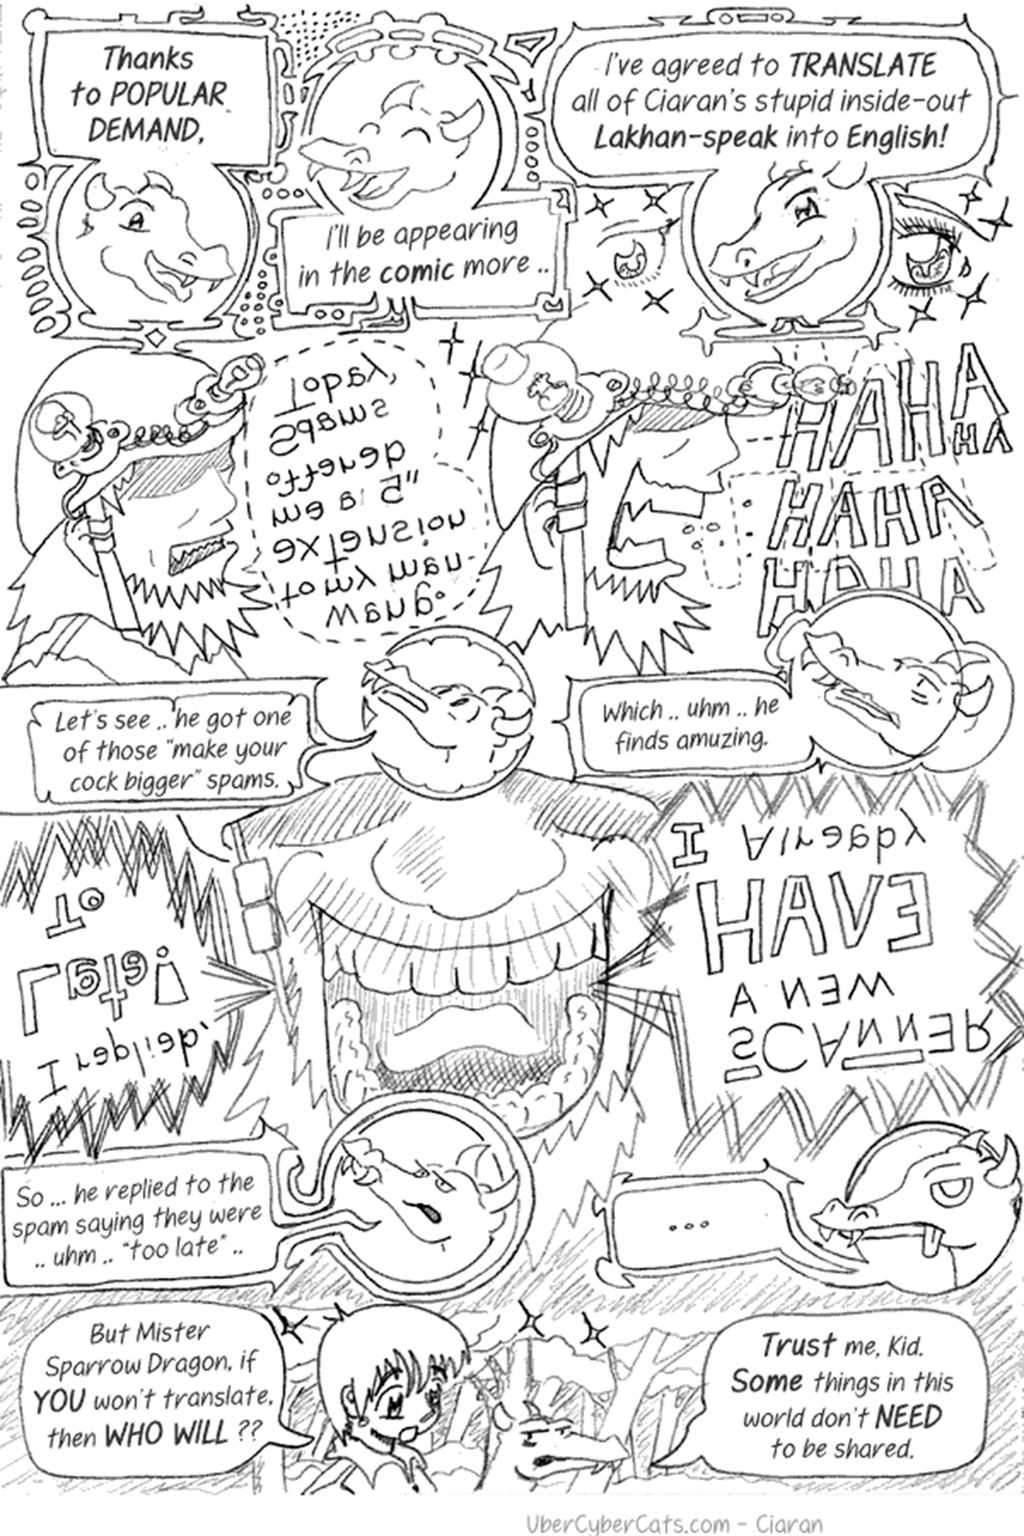 Thanks
to POPULAR
DEMAND,
I'll be appearing
in the comic more ..
I've agreed to TRANSLATE
all of Ciaran's stupid inside-out
Lakhan-speak into English!
Today,
Spams
offered
me a 5"
extension
to my man-
wang.
HAHA
HA
HAHA
HAHA
Let's see .. he got one
of those "make your
cock bigger" spams.
Which .. uhm .. he
finds amuzing.
To
Late!
I replied,
I Already
HAVE
A NEW
SCANNER
So ... he replied to the
spam saying they were
.. uhm .. "too late" ..
...
But Mister
Sparrow Dragon, if
YOU won't translate,
then WHO WILL ??
Trust me, Kid.
Some things in this
world don't NEED
to be shared.
UberCyberCats.com - Ciaran